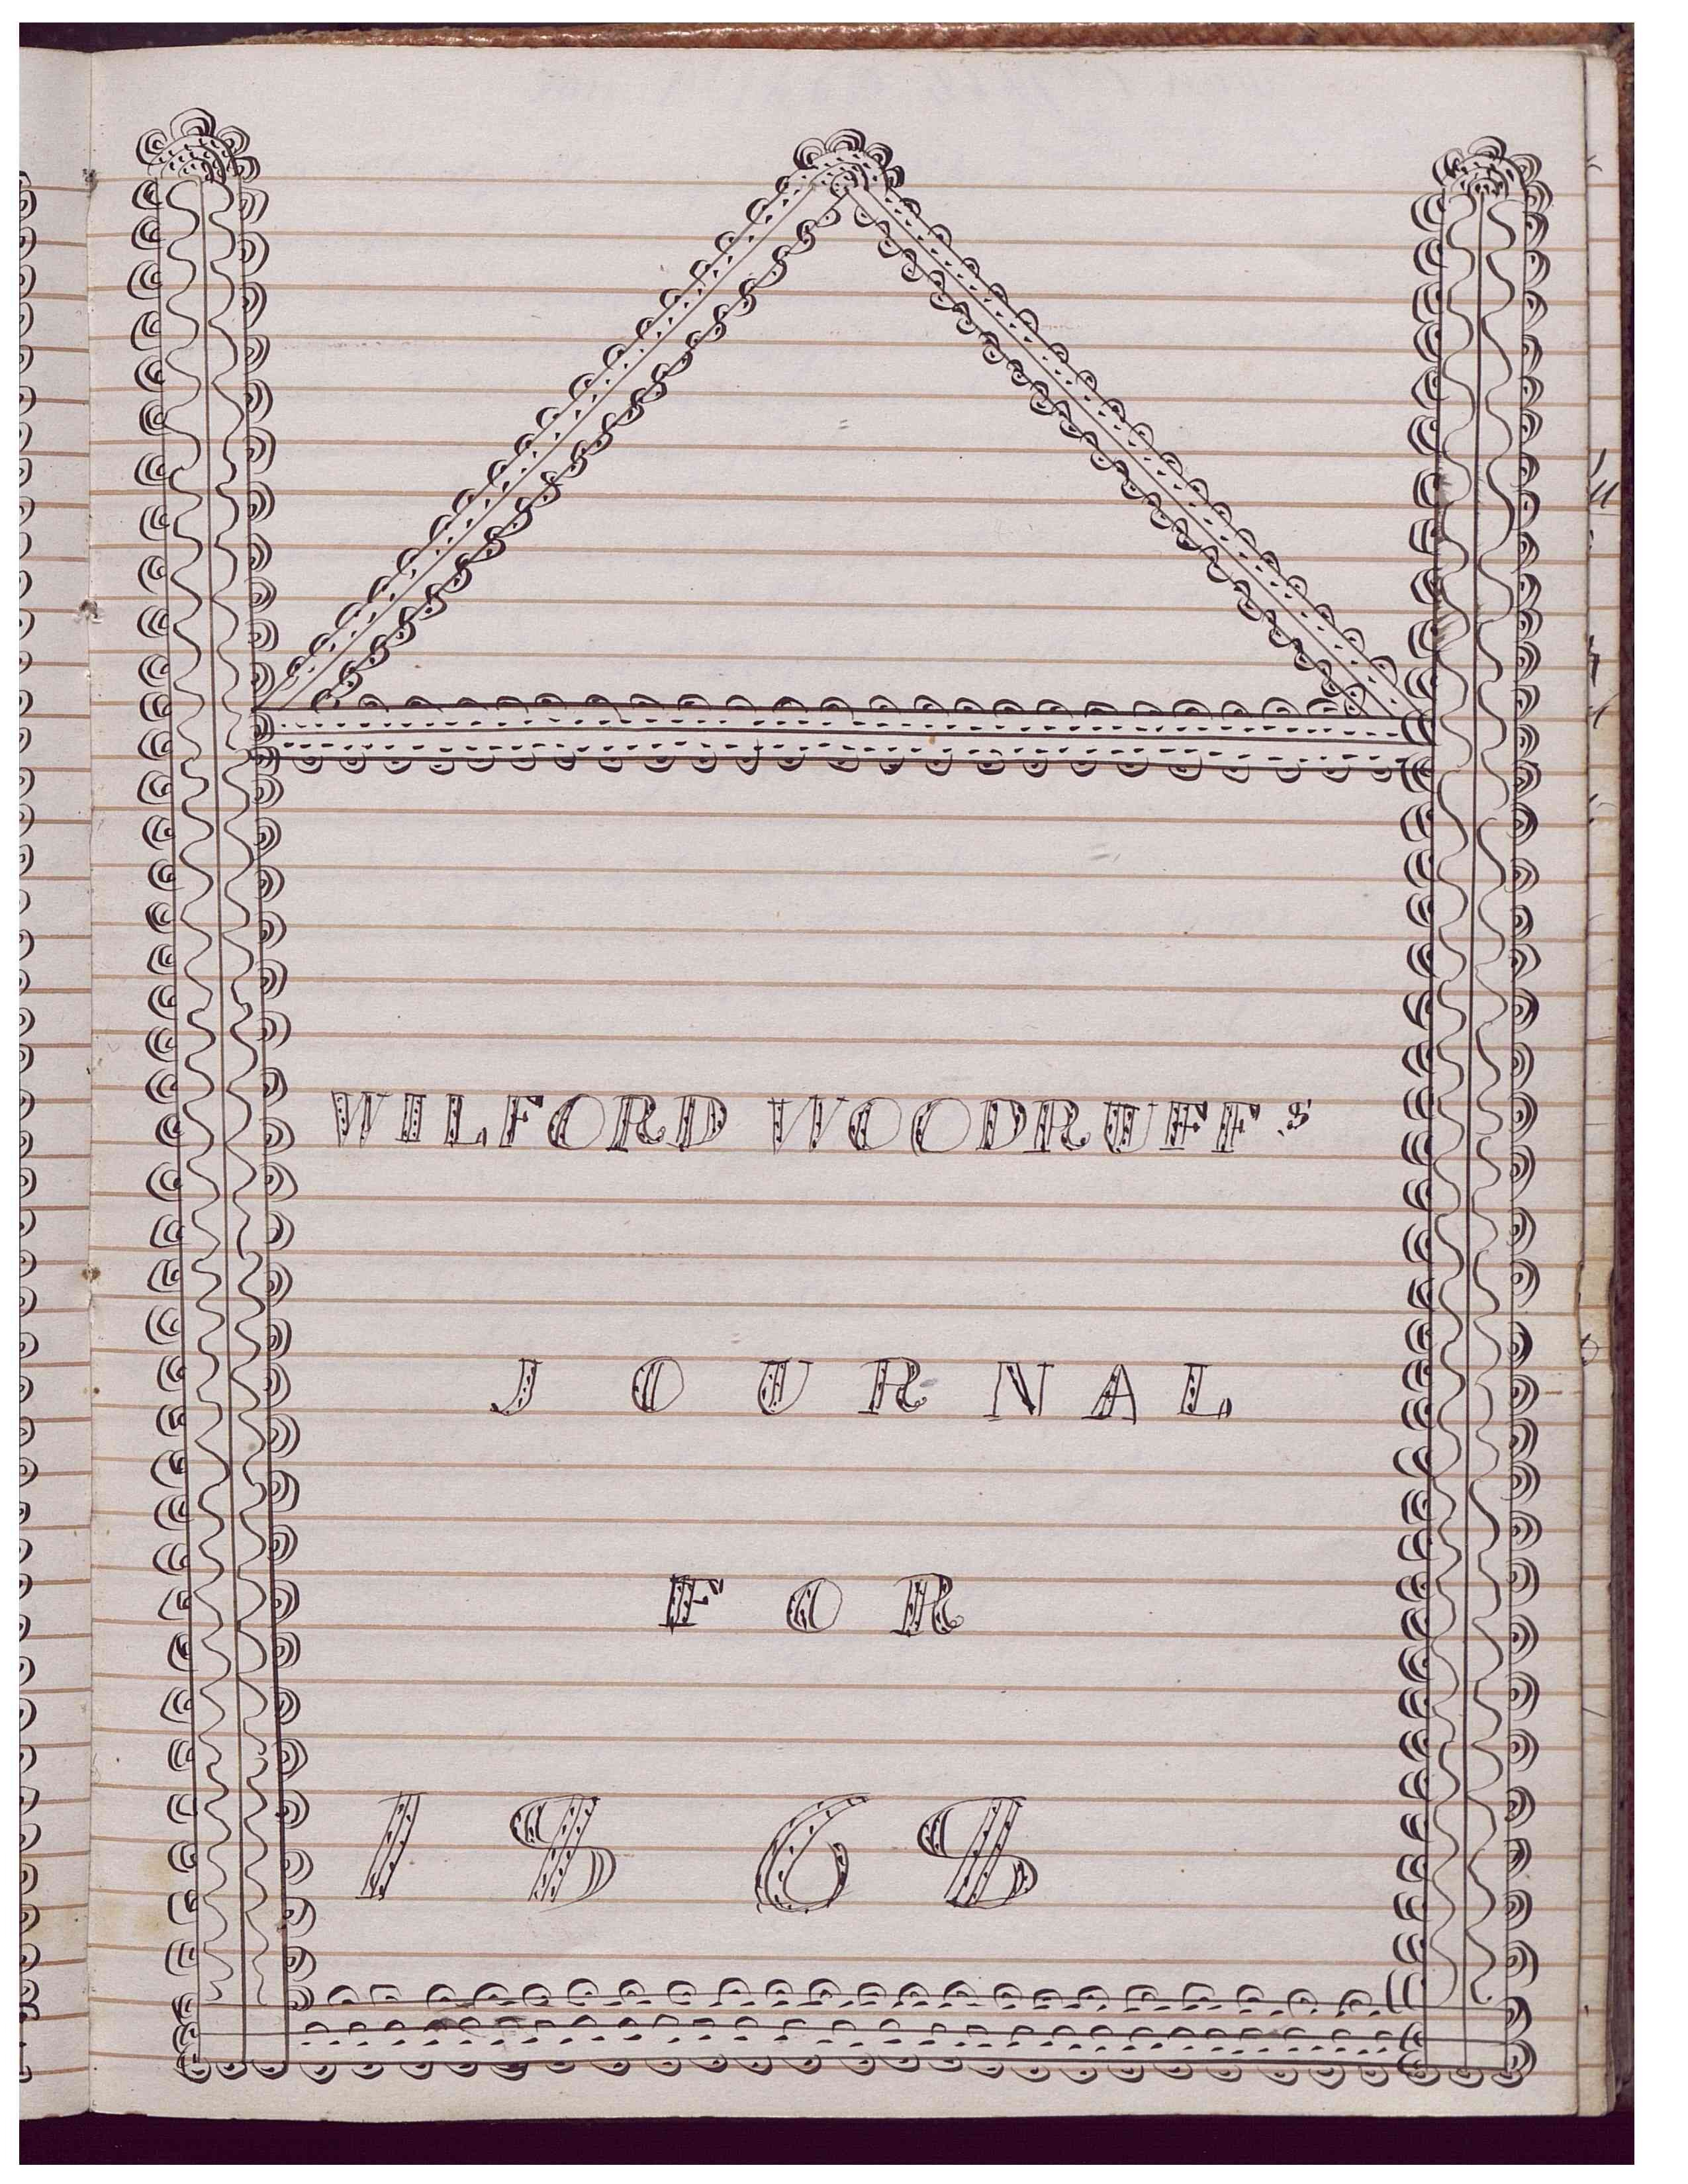 WILFORD WOODRUFF'S
JOURNAL
FOR
1868